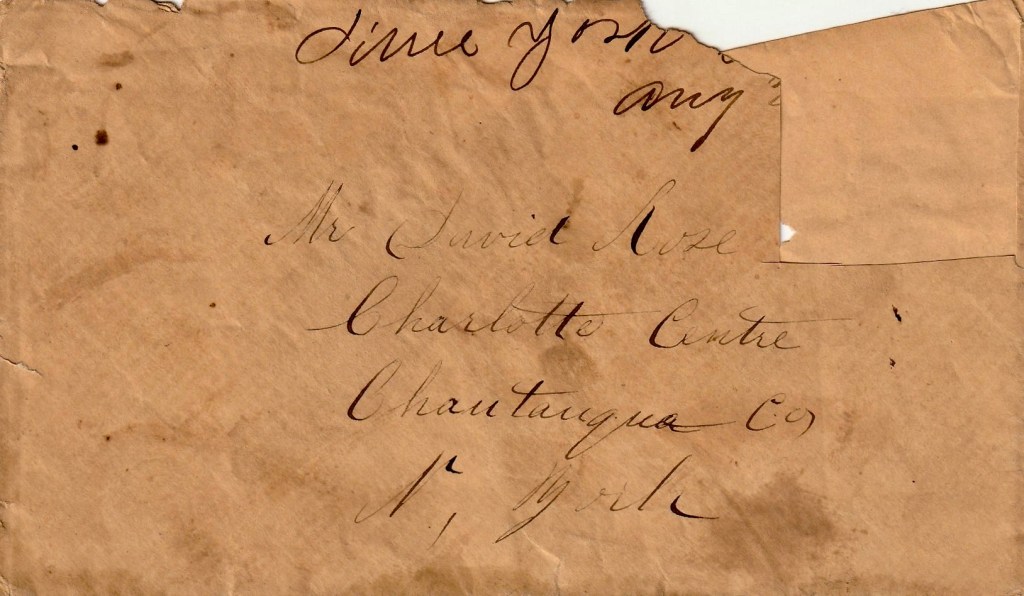 Aug
Mr David Rose
Charlotte Centre
Chautauqua Co,
N, York